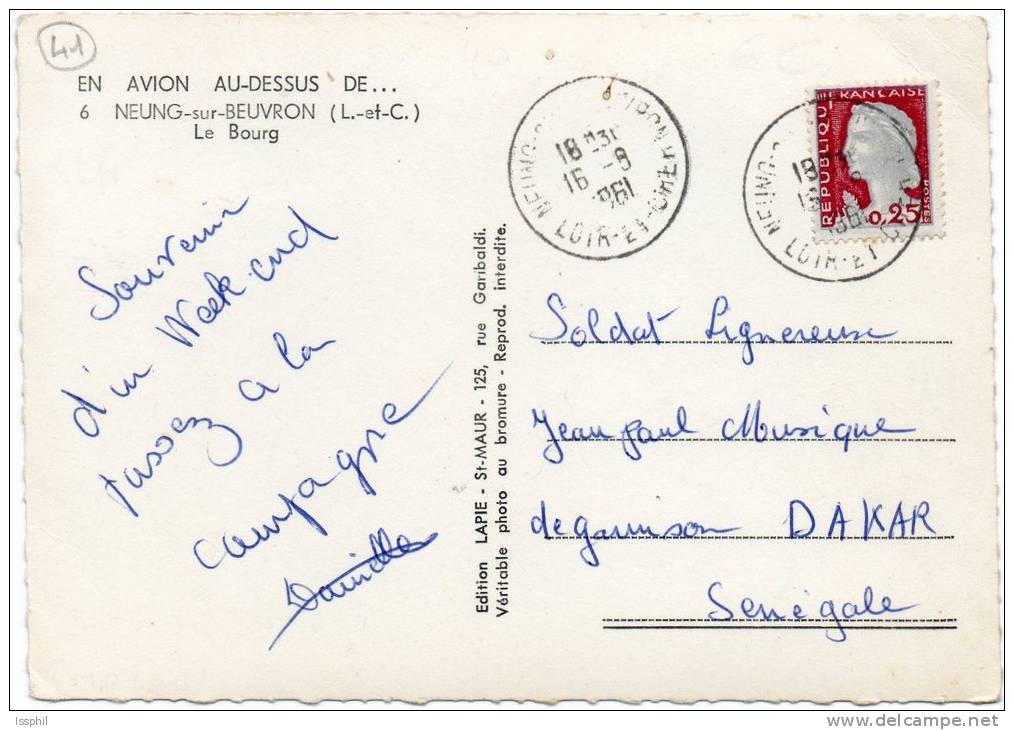 41
EN AVION AU-DESSUS DE...
6 NEUNG-sur-BEUVRON (L.-et-C.)
Le Bourg
Souvenir
d'un Week-end
passez a la
campagne
Edition LAPIE - St-MAUR - 125, rue Garibaldi.
Véritable photo au bromure - Reprod. interdite.
18 H 30
16 - 8
1961
LOIR-ET-CHER
REPUBLIQUE FRANCAISE
POSTES
0,25
LOIR-ET-CHER
Soldat Lignereux
Jean paul Musique
de garnison DAKAR
Senégale
Issphil
www.delcampe.net